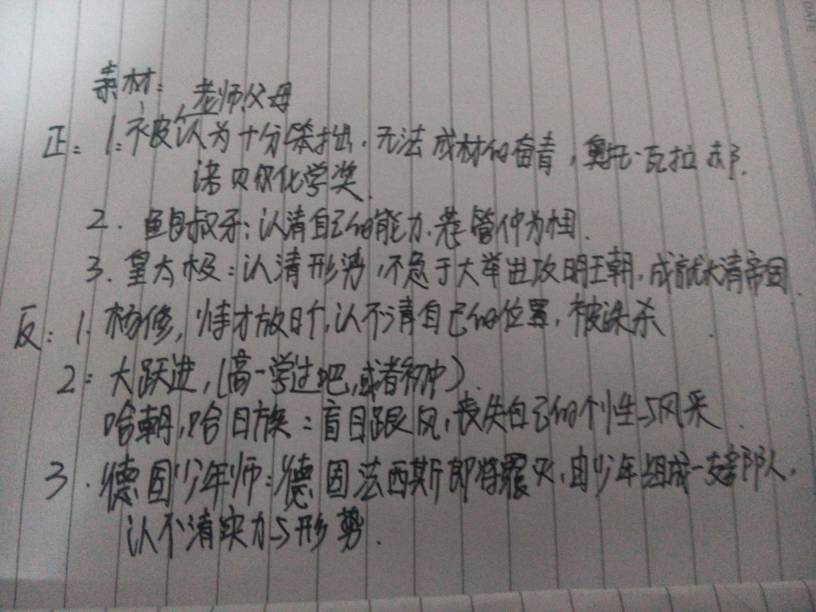 素材：老师父母
正：1. 被认为十分笨拙，无法成材的奋青，奥托·瓦拉赫.
诺贝尔化学奖.
2. 鲍叔牙：认清自己的能力.荐管仲为相.
3. 皇太极：认清形势，不急于大举进攻明王朝，成就大清帝国.
反：1. 杨修，恃才放旷，认不清自己的位置，被诛杀.
2：大跃进，(高一学过吧，或者初中).
哈韩，哈日族：盲目跟风，丧失自己的个性与风采.
3. 德国少年师：德国法西斯即将覆灭，由少年组成一支部队，
认不清实力与形势.